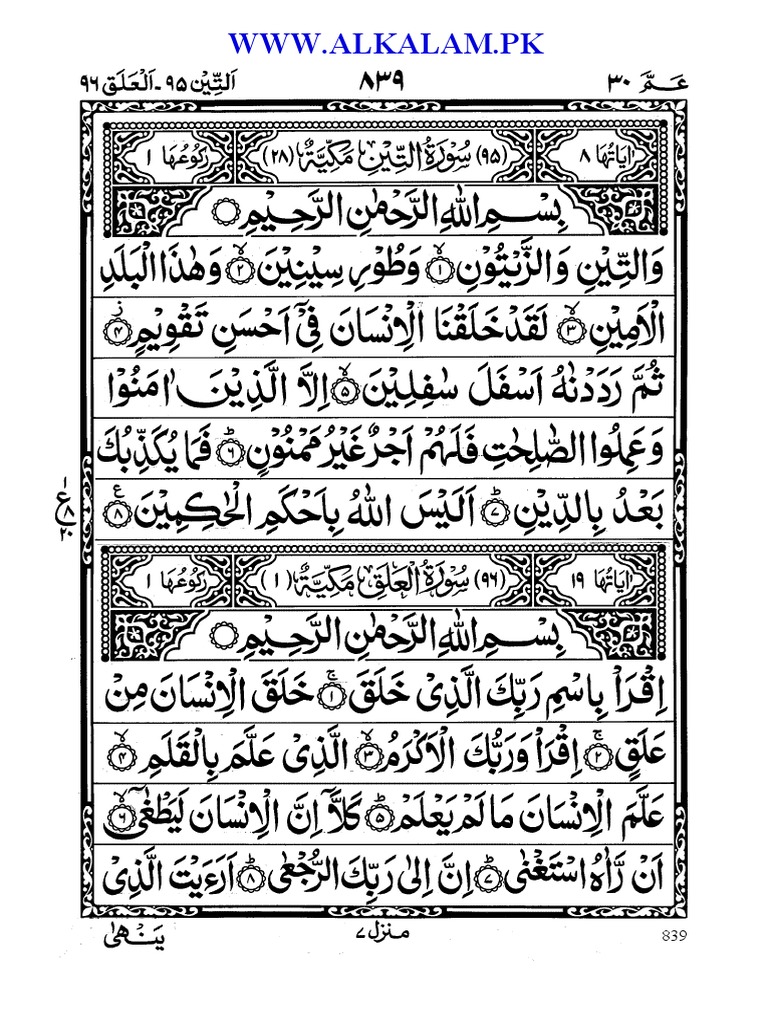 WWW.ALKALAM.PK
عـمّ ٣٠ ٨٣٩ اَلتِّيْن ٩٥ - اَلْعَلَق ٩٦
اٰيَاتُهَا ٨ (٩٥) سُوْرَةُ التِّيْنِ مَكِّيَّةٌ (٢٨) رُكُوْعُهَا ١
بِسْمِ اللّٰهِ الرَّحْمٰنِ الرَّحِيْمِ
وَالتِّيْنِ وَالزَّيْتُوْنِ ۙ﴿١﴾ وَطُوْرِ سِيْنِيْنَ ۙ﴿٢﴾ وَهٰذَا الْبَلَدِ
الْاَمِيْنِ ۙ﴿٣﴾ لَقَدْ خَلَقْنَا الْاِنْسَانَ فِيْٓ اَحْسَنِ تَقْوِيْمٍ ز﴿٤﴾
ثُمَّ رَدَدْنٰهُ اَسْفَلَ سٰفِلِيْنَ ۙ﴿٥﴾ اِلَّا الَّذِيْنَ اٰمَنُوْا
وَعَمِلُوا الصّٰلِحٰتِ فَلَهُمْ اَجْرٌ غَيْرُ مَمْنُوْنٍ ؕ﴿٦﴾ فَمَا يُكَذِّبُكَ
بَعْدُ بِالدِّيْنِ ؕ﴿٧﴾ اَلَيْسَ اللّٰهُ بِاَحْكَمِ الْحٰكِمِيْنَ ع﴿٨﴾
١ ع ٨ ٢٠
اٰيَاتُهَا ١٩ (٩٦) سُوْرَةُ الْعَلَقِ مَكِّيَّةٌ (١) رُكُوْعُهَا ١
بِسْمِ اللّٰهِ الرَّحْمٰنِ الرَّحِيْمِ
اِقْرَاْ بِاسْمِ رَبِّكَ الَّذِيْ خَلَقَ ۚ﴿١﴾ خَلَقَ الْاِنْسَانَ مِنْ
عَلَقٍ ۚ﴿٢﴾ اِقْرَاْ وَرَبُّكَ الْاَكْرَمُ ۙ﴿٣﴾ الَّذِيْ عَلَّمَ بِالْقَلَمِ ۙ﴿٤﴾
عَلَّمَ الْاِنْسَانَ مَا لَمْ يَعْلَمْ ؕ﴿٥﴾ كَلَّآ اِنَّ الْاِنْسَانَ لَيَطْغٰٓى ۙ﴿٦﴾
اَنْ رَّاٰهُ اسْتَغْنٰى ؕ﴿٧﴾ اِنَّ اِلٰى رَبِّكَ الرُّجْعٰى ؕ﴿٨﴾ اَرَءَيْتَ الَّذِيْ
839 منزل ٧ يَنْهٰى